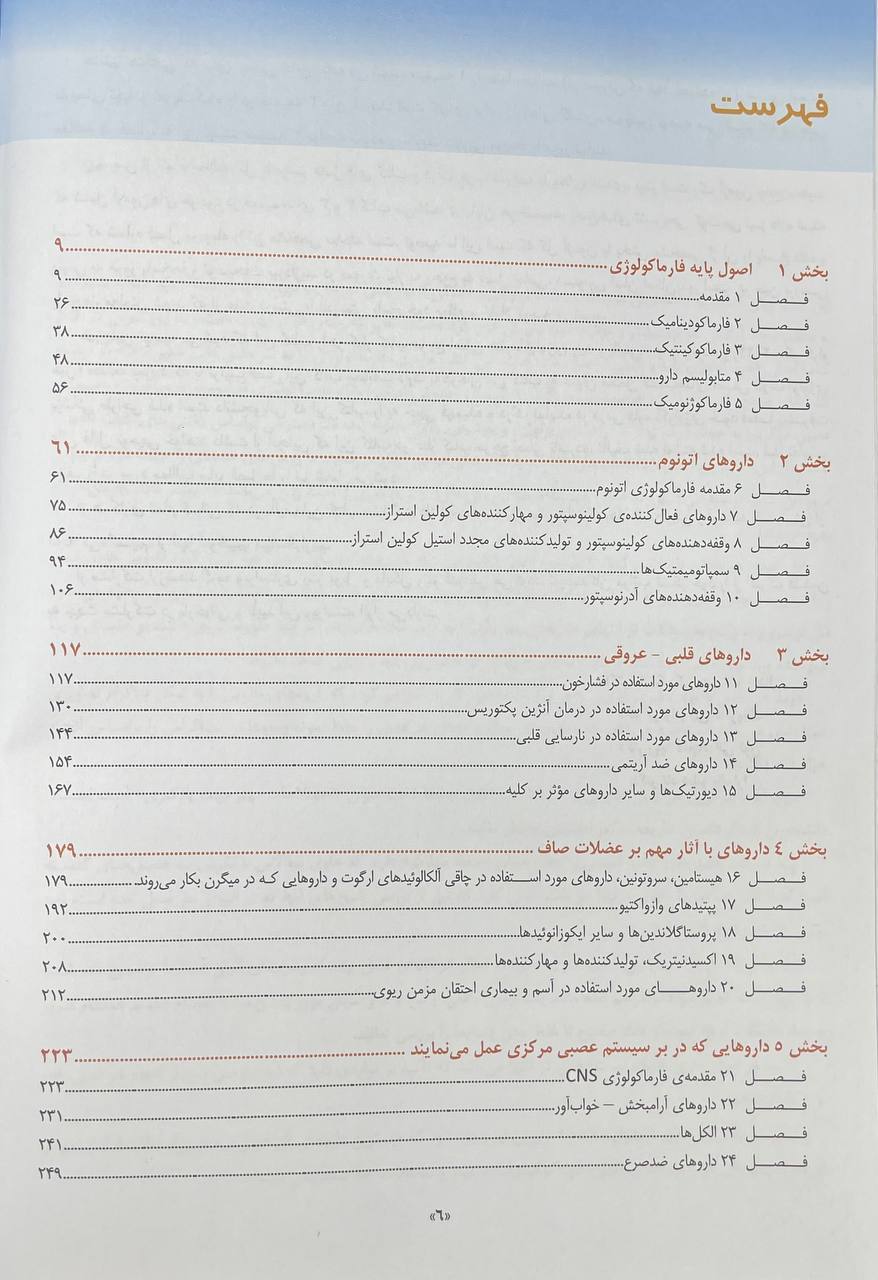 فهرست
بخش ۱ اصول پایه فارماکولوژی ۹
فصل ۱ مقدمه ۹
فصل ۲ فارماکودینامیک ۲۶
فصل ۳ فارماکوکینتیک ۳۸
فصل ۴ متابولیسم دارو ۴۸
فصل ۵ فارماکوژنومیک ۵۶
بخش ۲ داروهای اتونوم ۶۱
فصل ۶ مقدمه فارماکولوژی اتونوم ۶۱
فصل ۷ داروهای فعال‌کننده‌ی کولینوسپتور و مهارکننده‌های کولین استراز ۷۵
فصل ۸ وقفه‌دهنده‌های کولینوسپتور و تولیدکننده‌های مجدد استیل کولین استراز ۸۶
فصل ۹ سمپاتومیمتیک‌ها ۹۴
فصل ۱۰ وقفه‌دهنده‌های آدرنوسپتور ۱۰۶
بخش ۳ داروهای قلبی - عروقی ۱۱۷
فصل ۱۱ داروهای مورد استفاده در فشارخون ۱۱۷
فصل ۱۲ داروهای مورد استفاده در درمان آنژین پکتوریس ۱۳۰
فصل ۱۳ داروهای مورد استفاده در نارسایی قلبی ۱۴۴
فصل ۱۴ داروهای ضد آریتمی ۱۵۴
فصل ۱۵ دیورتیک‌ها و سایر داروهای مؤثر بر کلیه ۱۶۷
بخش ۴ داروهای با آثار مهم بر عضلات صاف ۱۷۹
فصل ۱۶ هیستامین، سروتونین، داروهای مورد استفاده در چاقی آلکالوئیدهای ارگوت و داروهایی که در میگرن بکار می‌روند ۱۷۹
فصل ۱۷ پپتیدهای وازواکتیو ۱۹۲
فصل ۱۸ پروستاگلاندین‌ها و سایر ایکوزانوئیدها ۲۰۰
فصل ۱۹ اکسیدنیتریک، تولیدکننده‌ها و مهارکننده‌ها ۲۰۸
فصل ۲۰ داروهای مورد استفاده در آسم و بیماری احتقان مزمن ریوی ۲۱۲
بخش ۵ داروهایی که در بر سیستم عصبی مرکزی عمل می‌نمایند ۲۲۳
فصل ۲۱ مقدمه‌ی فارماکولوژی CNS ۲۲۳
فصل ۲۲ داروهای آرامبخش - خواب‌آور ۲۳۱
فصل ۲۳ الکل‌ها ۲۴۱
فصل ۲۴ داروهای ضدصرع ۲۴۹
«۶»